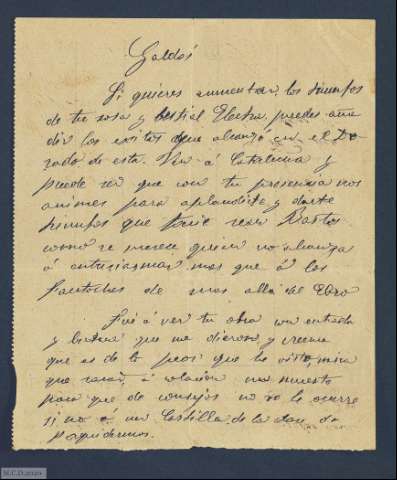 Galdós
Si quieres aumentar los triunfos
de tu sosa y bestial Electra, puedes aña
dir los exitos que alcanzó en el Do
rado de esta. Ven á Cataluña y
puede ser que con tu presencia nos
animes para aplaudirte y darte
triunfos que
como se merece quien no alcanza
á entusiasmar mas que á los
fantoches de mas allá del Ebro
Fuí á ver tu obra con entrada
y butaca que me dieron y creeme
que es de lo peor que he visto, mira
que á colacion un muerto
para que de consejos no se le ocurre
si no á un Castilla de la
paquidermos.